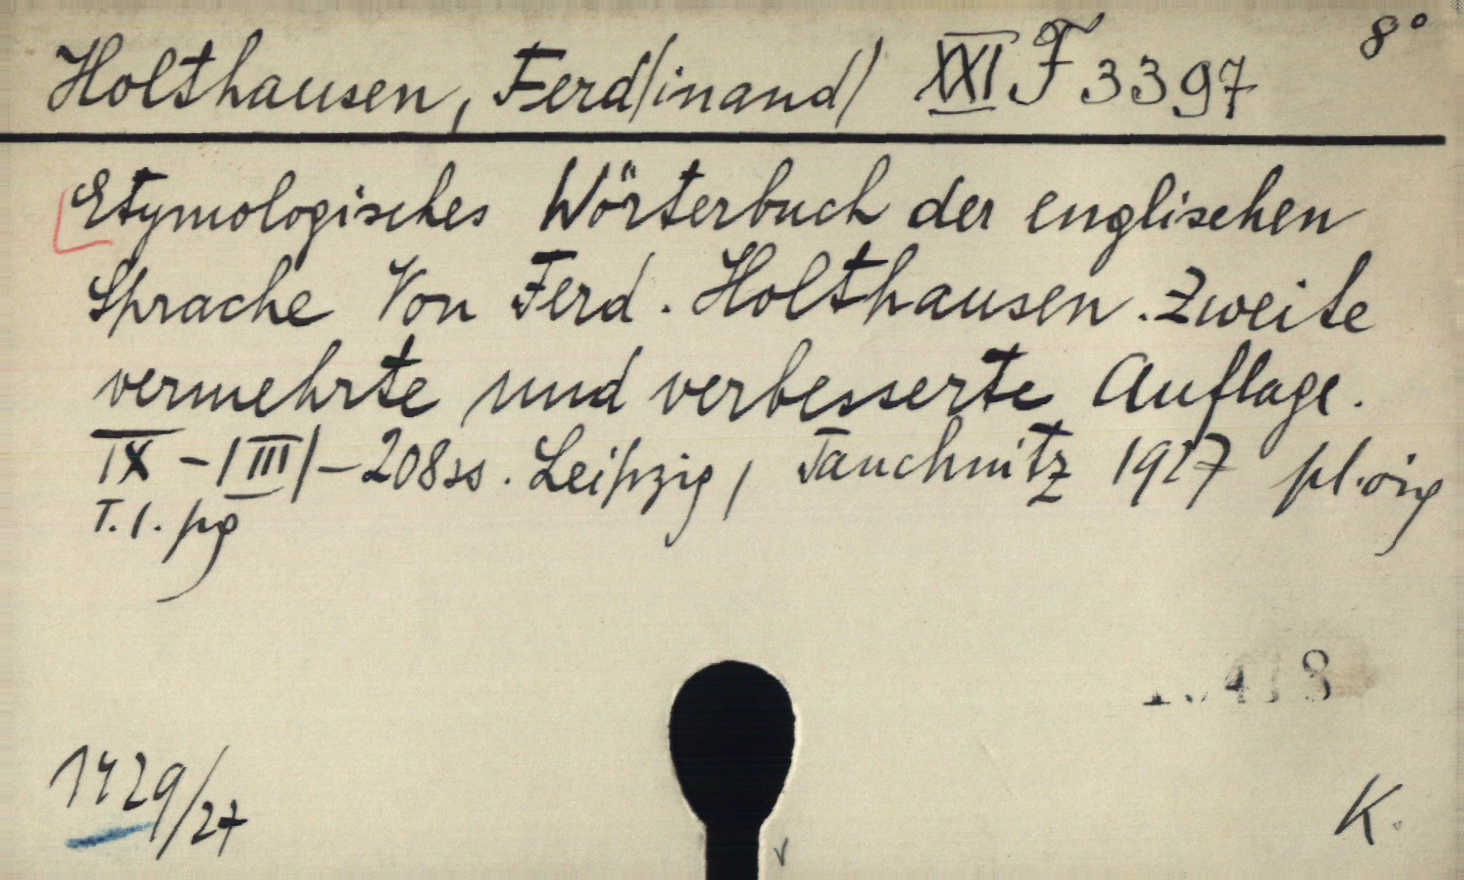 8°
Holthausen, Ferd/inand/ XXI F 3397
Etymologisches Wörterbuch der englischen
Sprache Von Ferd. Holthausen. Zweite
vermehrte und verbesserte Auflage.
IX-/III/-208ss. Leipzig, Tauchnitz 1927 pl. orig
T.1. pg
1429/27
K.